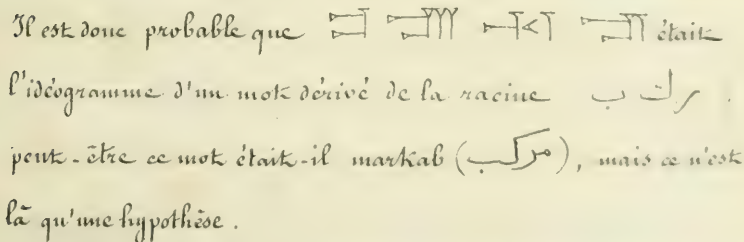 Il est donc probable que était
l'idéogramme d'un mot dérivé de la racine ر ك ب .
peut-être ce mot était-il markab (مركب), mais ce n'est
là qu'une hypothèse.